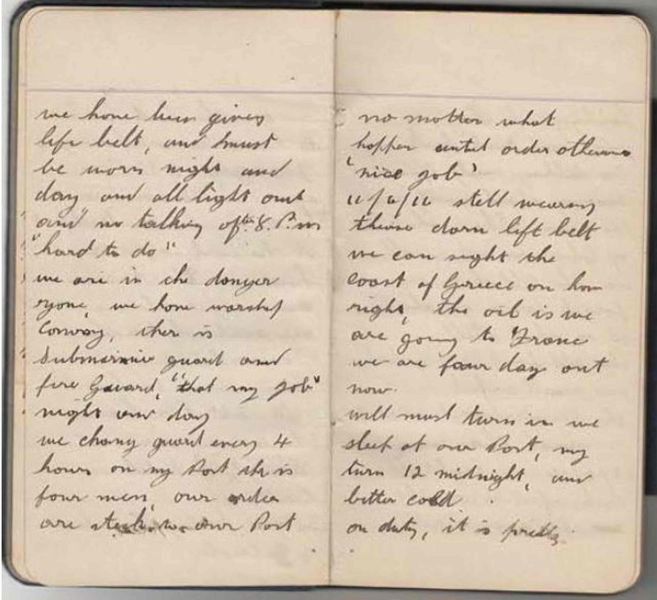 we have been given
life belt, and must
be worn night and
day and all light out
and no talking after 8. P.m
"hard to do"
we are in the danger
zyone, we have warship
Convoy, ther is
Submarine guard and
fire Guard, "that my job"
night and day
we chang guard every 4
hours on my Post ther is
four men, our order
are to our Post
no matter what
happen until order otherwise
'nice job'
11/6/16 still wearing
these darn lift belt
we can sight the
coast of Greece on
right, the is we
are going to France
we are four day out
now.
will must turn in we
sleep at our Post, my
turn 12 midnight, and
bitter cold.
on duty, it is pretty